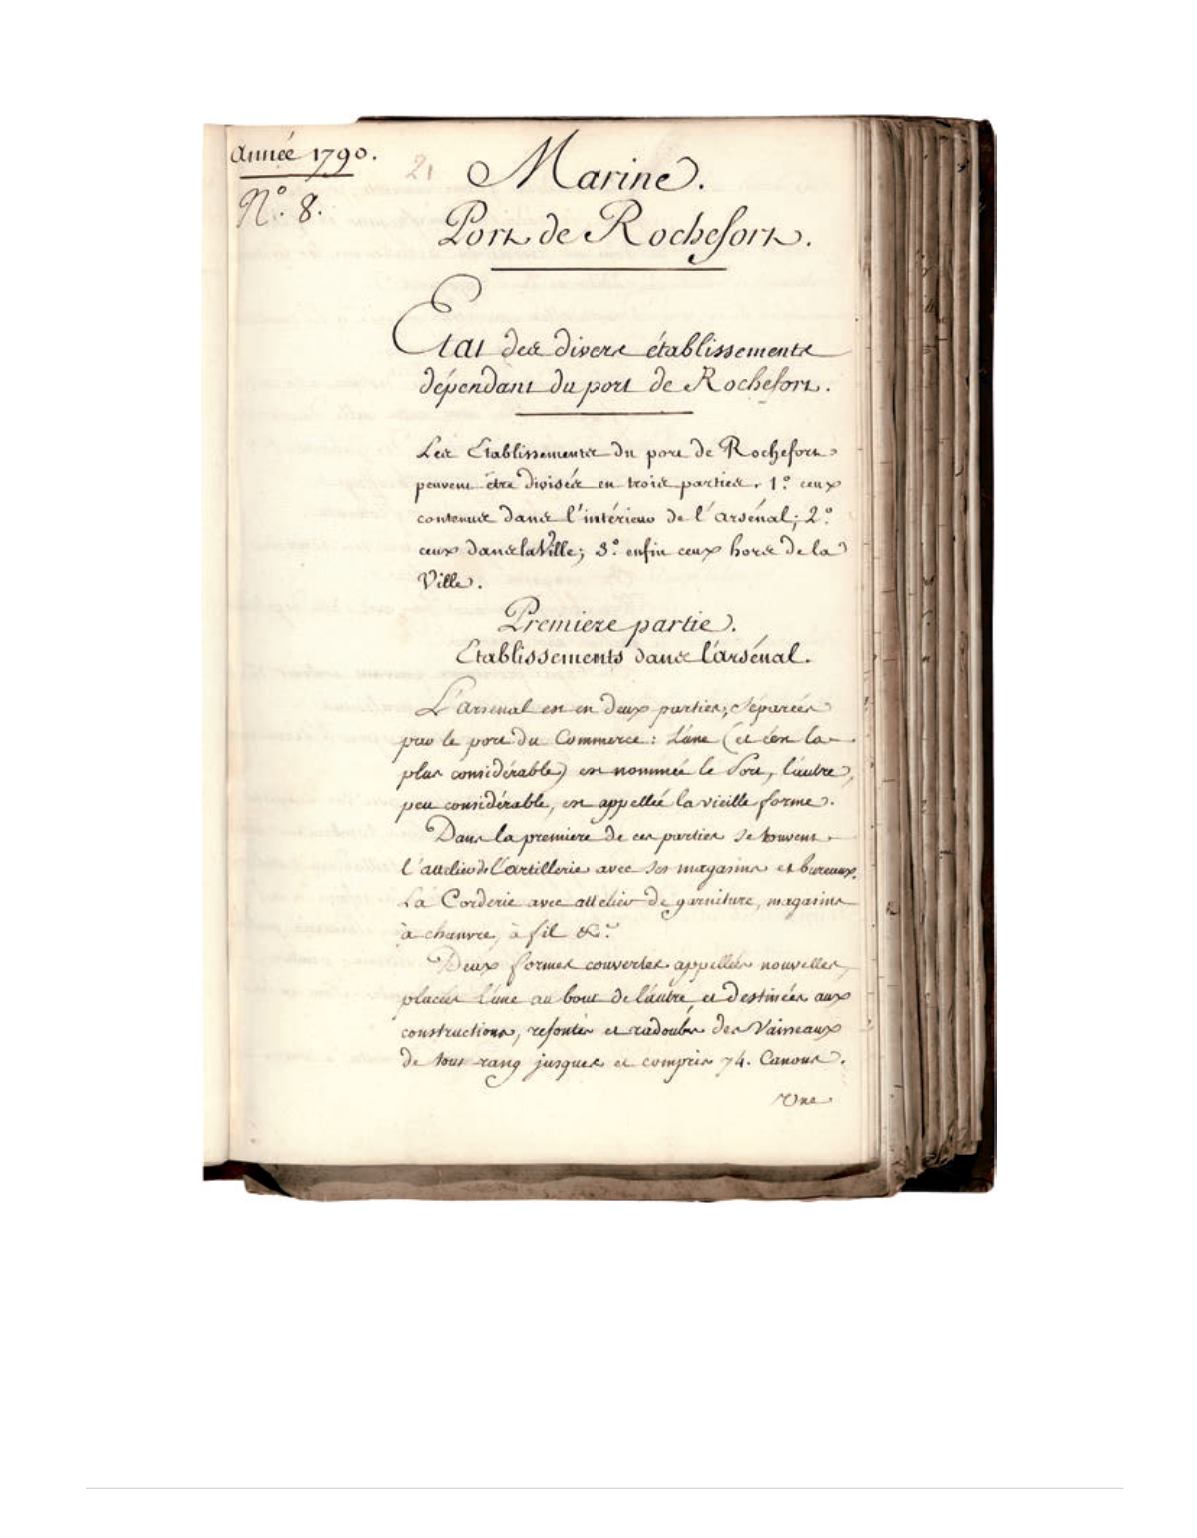 Année 1790.
N.° 8.
21
Marine.
Port de Rochefort.
Etat des divers établissements
dépendant du port de Rochefort.
Les Etablissements du port de Rochefort
peuvent être divisés en trois parties. 1.° ceux
contenus dans l'intérieur de l'arsénal; 2.°
ceux dans la Ville; 3.° enfin ceux hors de la
Ville.
Premiere partie.
Etablissements dans l'arsénal.
L'arsenal est en deux parties, séparées
par le port du Commerce: L'une (et c'est la
plus considérable) est nommée le Port, l'autre,
peu considérable, est appellée la vieille forme.
Dans la premiere de ces parties se trouvent
l'attelier de l'artillerie avec ses magasins et bureaux.
La Corderie avec attelier de garniture, magasins
à chanvre, à fil &c.ª
Deux formes couvertes appellées nouvelles,
placées l'une au bout de l'autre, et destinées aux
constructions, refontes et radoubs des Vaisseaux
de tout rang jusques et compris 74. Canons.
Une